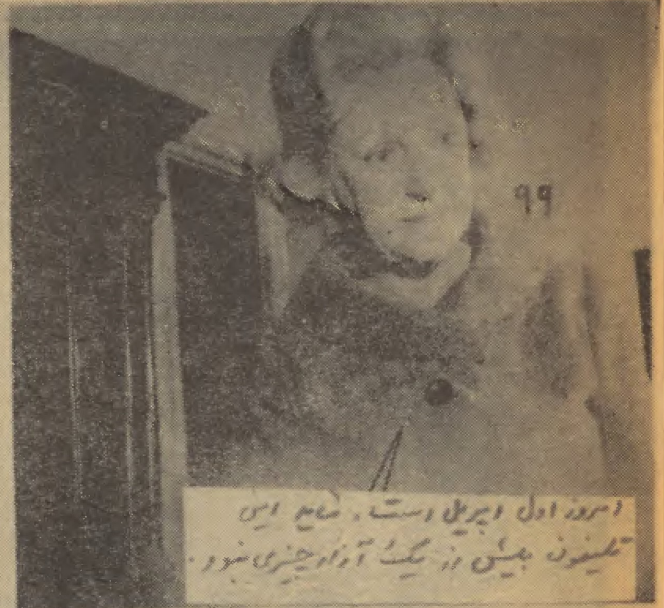 99
امروز اول اپریل است. شاید این
تلیفون بیش از یک آزار چیزی نبود.